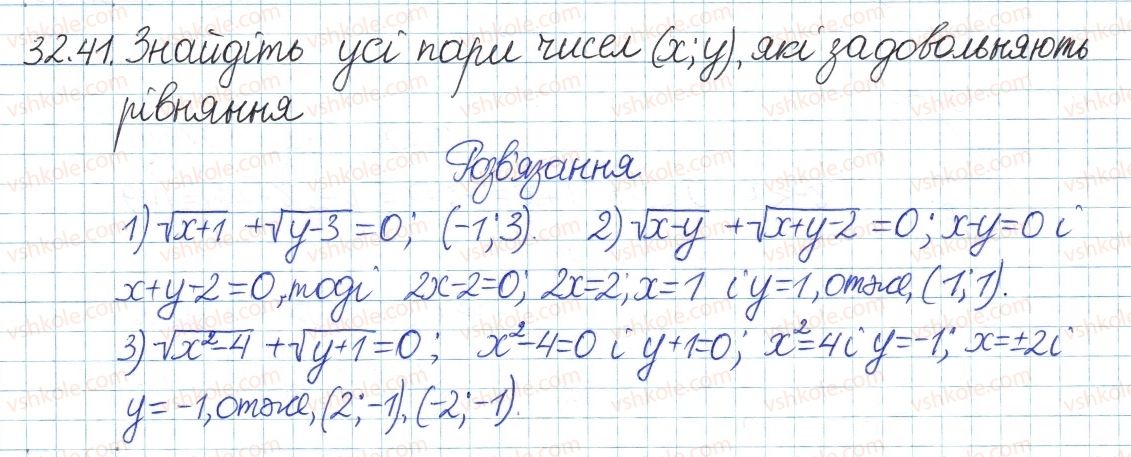 32.41. Знайдіть усі пари чисел (x;y), які задовольняють
рівняння
Розв'язання
1) √x+1 + √y-3 = 0; (-1; 3). 2) √x-y + √x+y-2 = 0; x-y=0 і
x+y-2=0, тоді 2x-2=0; 2x=2; x=1 і y=1, отже, (1; 1).
3) √x²-4 + √y+1 = 0; x²-4=0 і y+1=0; x²=4 і y=-1; x=±2 і
y=-1, отже, (2; -1), (-2; -1).